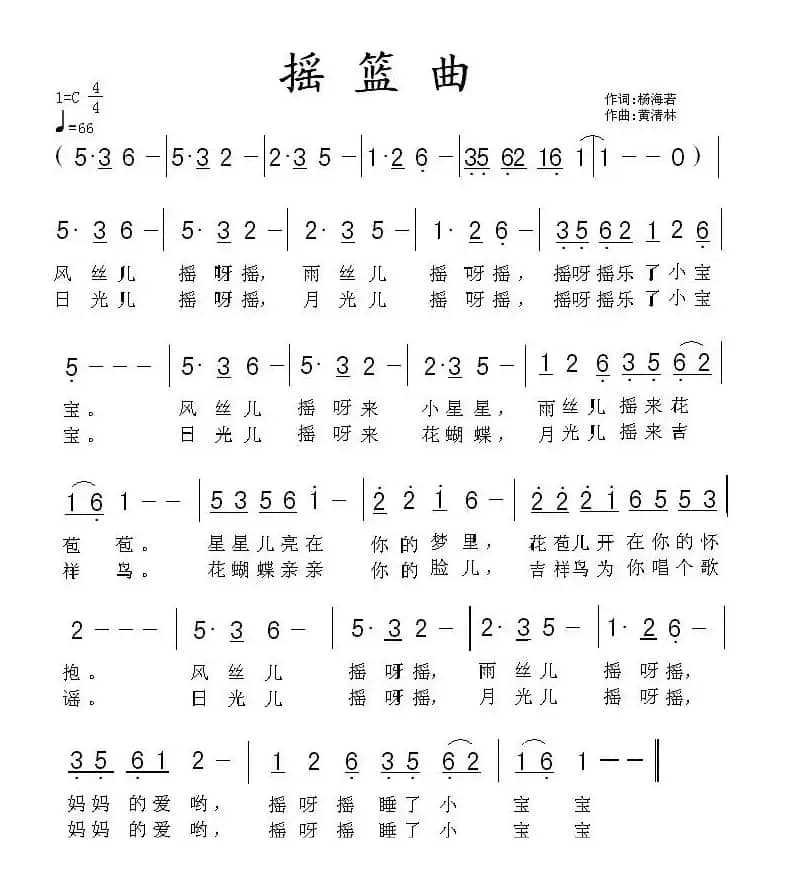 摇篮曲
1=C 4/4
♩=66
作词:杨海若
作曲:黄清林
( 5·3 6 - | 5·3 2 - | 2·3 5 - | 1·2 6 - | 35 62 16 1 | 1 - - 0 ) |
5· 3 6 - | 5· 3 2 - | 2· 3 5 - | 1· 2 6 - | 3562 1 26 |
风丝儿 摇呀摇, 雨丝儿 摇呀摇, 摇呀摇乐了小宝
日光儿 摇呀摇, 月光儿 摇呀摇, 摇呀摇乐了小宝
5 - - - | 5· 3 6 - | 5· 3 2 - | 2·3 5 - | 1 2 6 3 5 6 2 |
宝。 风丝儿 摇呀来 小星星, 雨丝儿摇来花
宝。 日光儿 摇呀来 花蝴蝶, 月光儿摇来吉
1 6 1 - - | 5 3 5 6 1 - | 2 2 1 6 - | 2 2 2 1 6 5 5 3 |
苞 苞。 星星儿亮在 你的梦里, 花苞儿开在你的怀
祥 鸟。 花蝴蝶亲亲 你的脸儿, 吉祥鸟为你唱个歌
2 - - - | 5· 3 6 - | 5· 3 2 - | 2· 3 5 - | 1· 2 6 - |
抱。 风丝儿 摇呀摇, 雨丝儿 摇呀摇,
谣。 日光儿 摇呀摇, 月光儿 摇呀摇,
3 5 6 1 2 - | 1 2 6 3 5 6 2 | 1 6 1 - - ‖
妈妈的爱哟, 摇呀摇睡了小 宝 宝
妈妈的爱哟, 摇呀摇睡了小 宝 宝